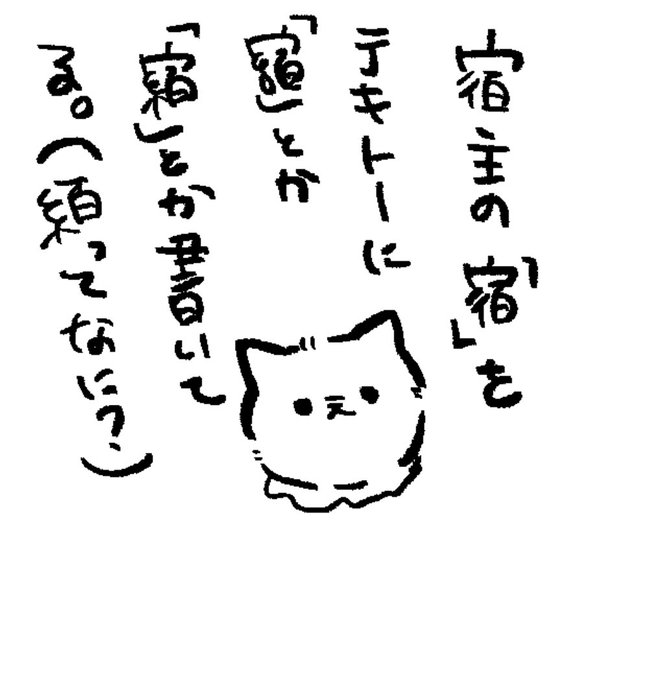 宿主の「宿」を
テキトーに
「」とか
「」とか書いて
る。(ってなに?)
え